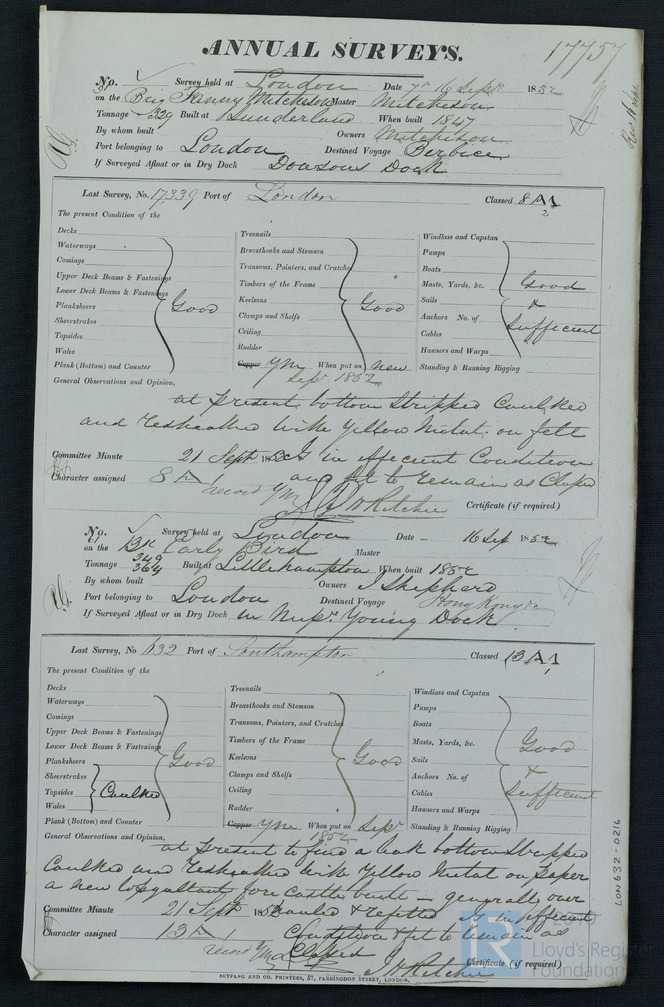 ANNUAL SURVEYS.
17757
No. Survey held at London Date 7 & 16 Sept 1852
on the Brig Fanny Mitcheson Master Mitcheson
Tonnage 329 Built at Sunderland When built 1847
By whom built Owners Mitcheson
Port belonging to London Destined Voyage Berbice
If Surveyed Afloat or in Dry Dock Dowsons Dock
Last Survey, No. 17339 Port of London Classed 8 A1
The present Condition of the
Decks
Waterways
Comings
Upper Deck Beams & Fastenings
Lower Deck Beams & Fastenings
Planksheers
Sheerstrakes
Topsides
Wales
Plank (Bottom) and Counter
Good
Treenails
Breasthooks and Stemson
Transoms, Pointers, and Crutches
Timbers of the Frame
Keelsons
Clamps and Shelfs
Ceiling
Rudder
Copper YM When put on new
Sepr 1852
Good
Windlass and Capstan
Pumps
Boats
Masts, Yards, &c.
Sails
Anchors No. of
Cables
Hawsers and Warps
Standing & Running Rigging
Good
&
Sufficient
General Observations and Opinion,
at present bottom stripped Caulked
and resheathed with Yellow Metal on felt
Committee Minute 21 Sept 1852 is in efficient Condition
Character assigned 8 A 1 and fit to remain as Classed
record YM
J H Ritchie
Certificate (if required)
No. Survey held at London Date - 16 Sep 1852
on the Bk Early Bird Master
Tonnage 349 364 Built at Littlehampton When built 1852
By whom built Owners J Shepherd
Port belonging to London Destined Voyage Hong Kong
If Surveyed Afloat or in Dry Dock in Mrs Young Dock
Last Survey, No 632 Port of Southampton Classed 13 A1
The present Condition of the
Decks
Waterways
Comings
Upper Deck Beams & Fastenings
Lower Deck Beams & Fastenings
Planksheers
Sheerstrakes
Topsides
Wales
Plank (Bottom) and Counter
Good
Caulked
Treenails
Breasthooks and Stemson
Transoms, Pointers, and Crutches
Timbers of the Frame
Keelsons
Clamps and Shelfs
Ceiling
Rudder
Copper YM When put on Sepr
1852
Good
Windlass and Capstan
Pumps
Boats
Masts, Yards, &c.
Sails
Anchors No. of
Cables
Hawsers and Warps
Standing & Running Rigging
Good
&
Sufficient
General Observations and Opinion,
at present to find a leak bottom Stripped
Caulked and resheathed with Yellow Metal on paper
a new topgallant fore castle built - generally over
Committee Minute 21 Sept 1852 hauled & refitted is in efficient
Character assigned 13 A 1 Condition & fit to remain as
record YM Classed
J H Ritchie
Certificate (if required)
SEYFANG AND CO. PRINTERS, 57, FARRINGDON STREET, LONDON.
LON632-0216
Lloyd's Register
Foundation